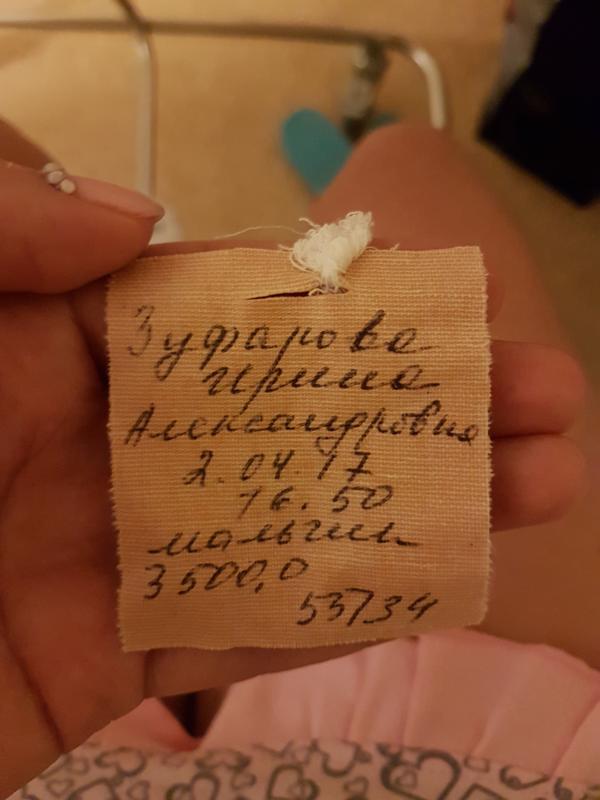 Зуфарова
Ирина
Александровна
2.04.17
16.50
мальчик
3500,0
53/34